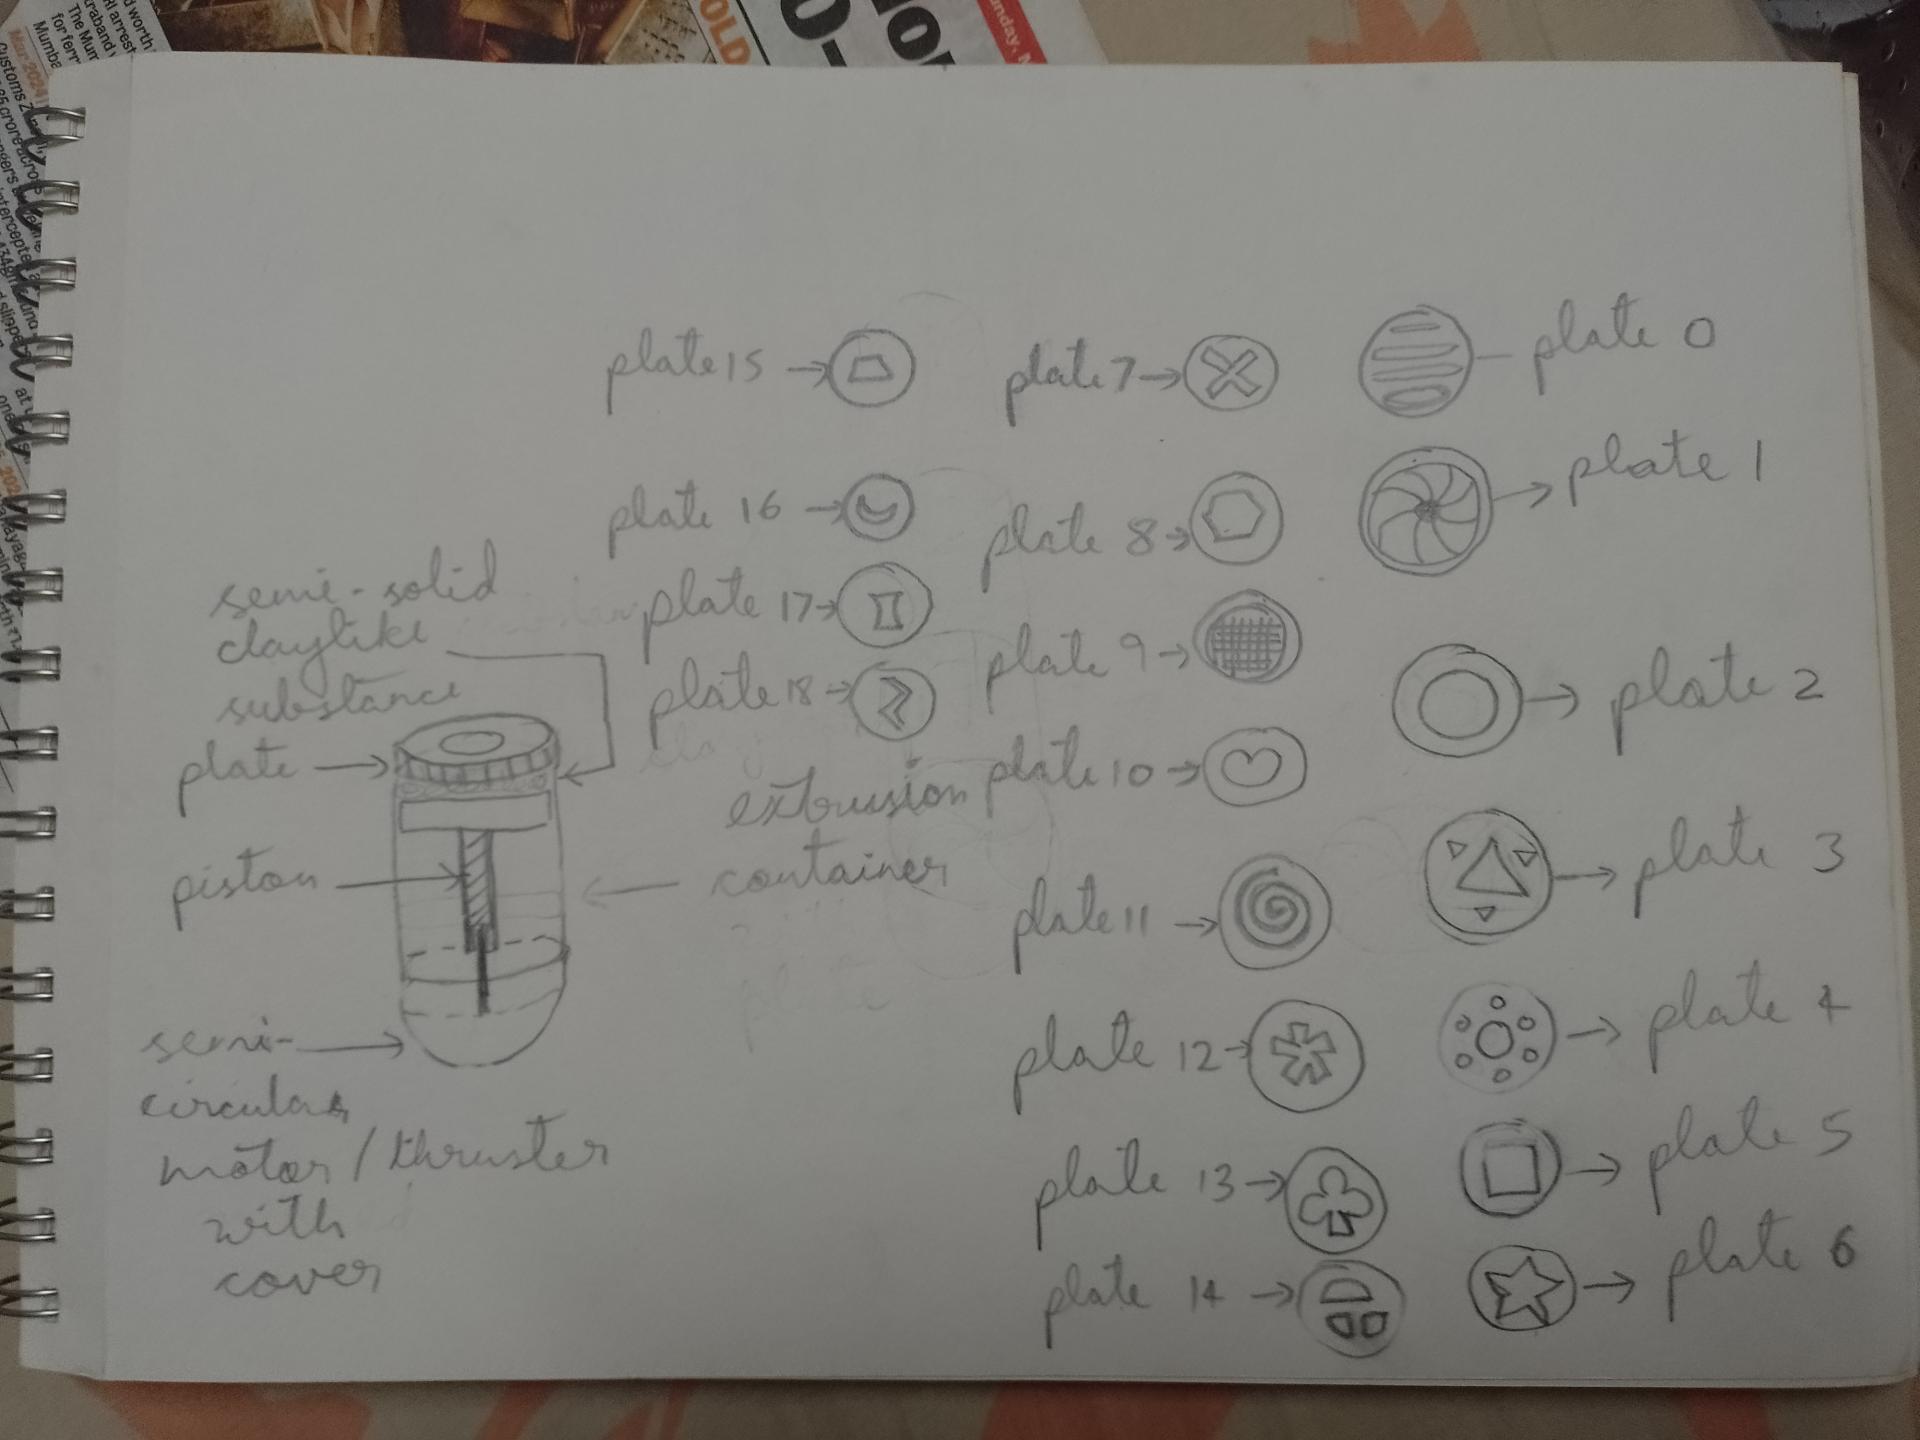 OLD
plate 15
plate 7
plate 0
plate 16
plate 8
plate 1
semi-solid
claylike
substance
plate 17
plate 9
plate 18
plate 2
plate
extrusion
container
plate 10
piston
plate 3
plate 11
semi-
circular
motor/thruster
with
cover
plate 12
plate 4
plate 13
plate 5
plate 14
plate 6